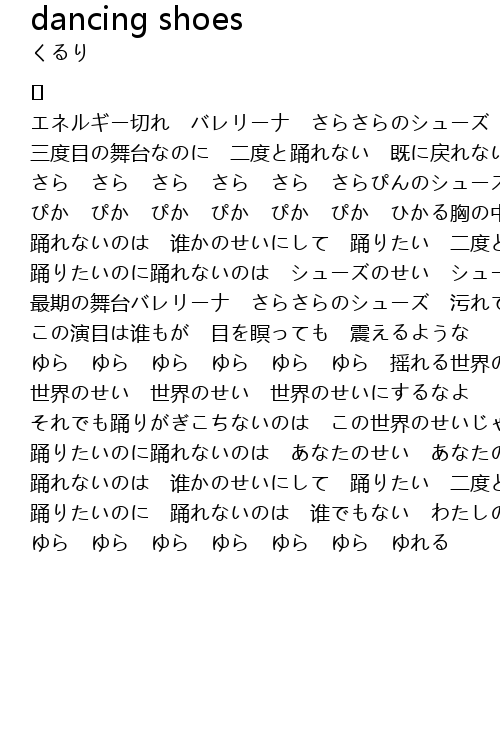 dancing shoes
くるり
エネルギー切れ　バレリーナ　さらさらのシューズ
三度目の舞台なのに　二度と踊れない　既に戻れない
さら　さら　さら　さら　さら　さらぴんのシューズ
ぴか　ぴか　ぴか　ぴか　ぴか　ぴか　ひかる胸の中
踊れないのは　誰かのせいにして　踊りたい　二度と
踊りたいのに踊れないのは　シューズのせい　シュー
最期の舞台バレリーナ　さらさらのシューズ　汚れて
この演目は誰もが　目を瞑っても　震えるような
ゆら　ゆら　ゆら　ゆら　ゆら　ゆら　揺れる世界の
世界のせい　世界のせい　世界のせいにするなよ
それでも踊りがぎこちないのは　この世界のせいじゃ
踊りたいのに踊れないのは　あなたのせい　あなたの
踊れないのは　誰かのせいにして　踊りたい　二度と
踊りたいのに　踊れないのは　誰でもない　わたしの
ゆら　ゆら　ゆら　ゆら　ゆら　ゆら　ゆれる